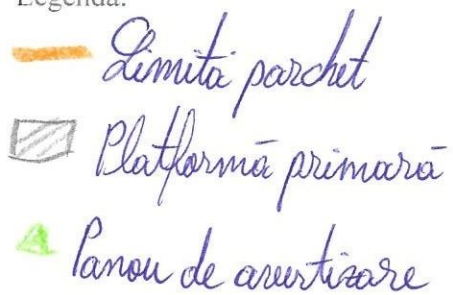 Legenda:
Limită parchet
Platformă primară
Panou de avertizare